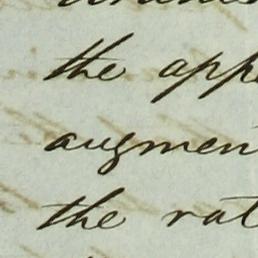 the app
augmen
the rat